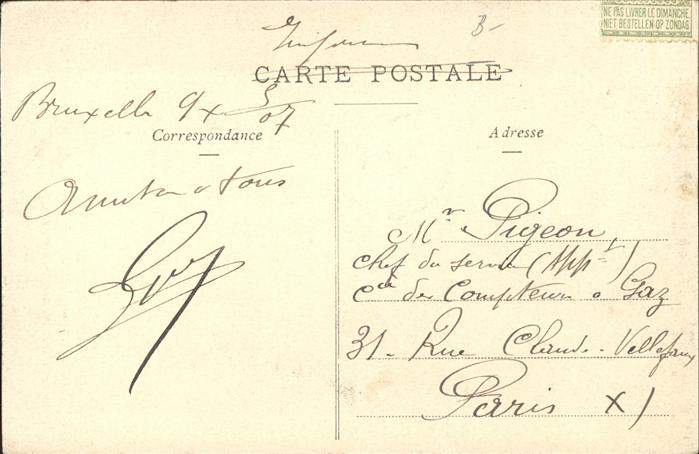 NE PAS LIVRER LE DIMANCHE
NIET BESTELLEN OP ZONDAG
B-
CARTE POSTALE
Bruxelle 9/x 07
Correspondance
Adresse
à tous
Guy
Mr Pigeon,
chef du service (Appt)
Cie des Compteurs à Gaz
31 - Rue Claude-Vellefaux
Paris X)